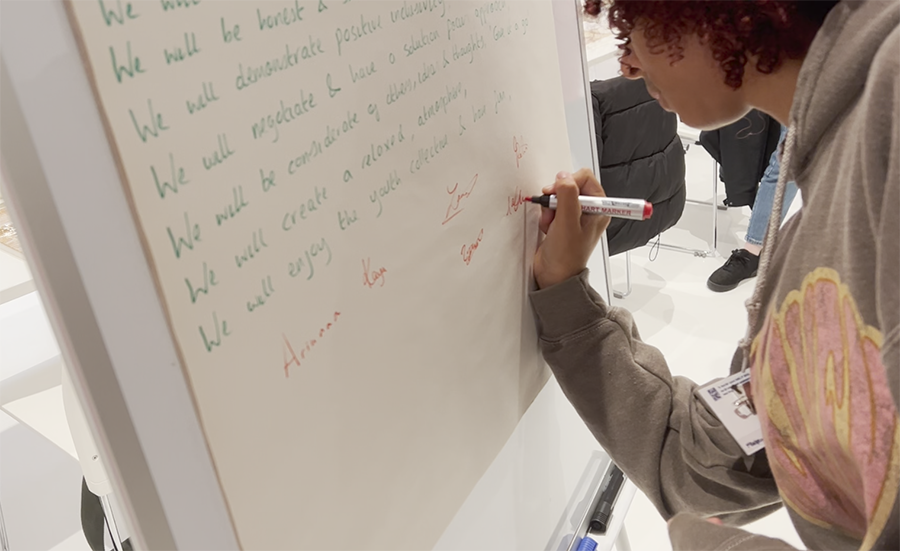 We will
We will be honest &
We will demonstrate positive inclusivity
We will negotiate & have a solution focus approach,
We will be considerate of others, ideas & thoughts "Give it a go"
We will create a relaxed, atmosphere,
We will enjoy the youth collective & have fun,
Arianna
Kaya
CHART MARKER